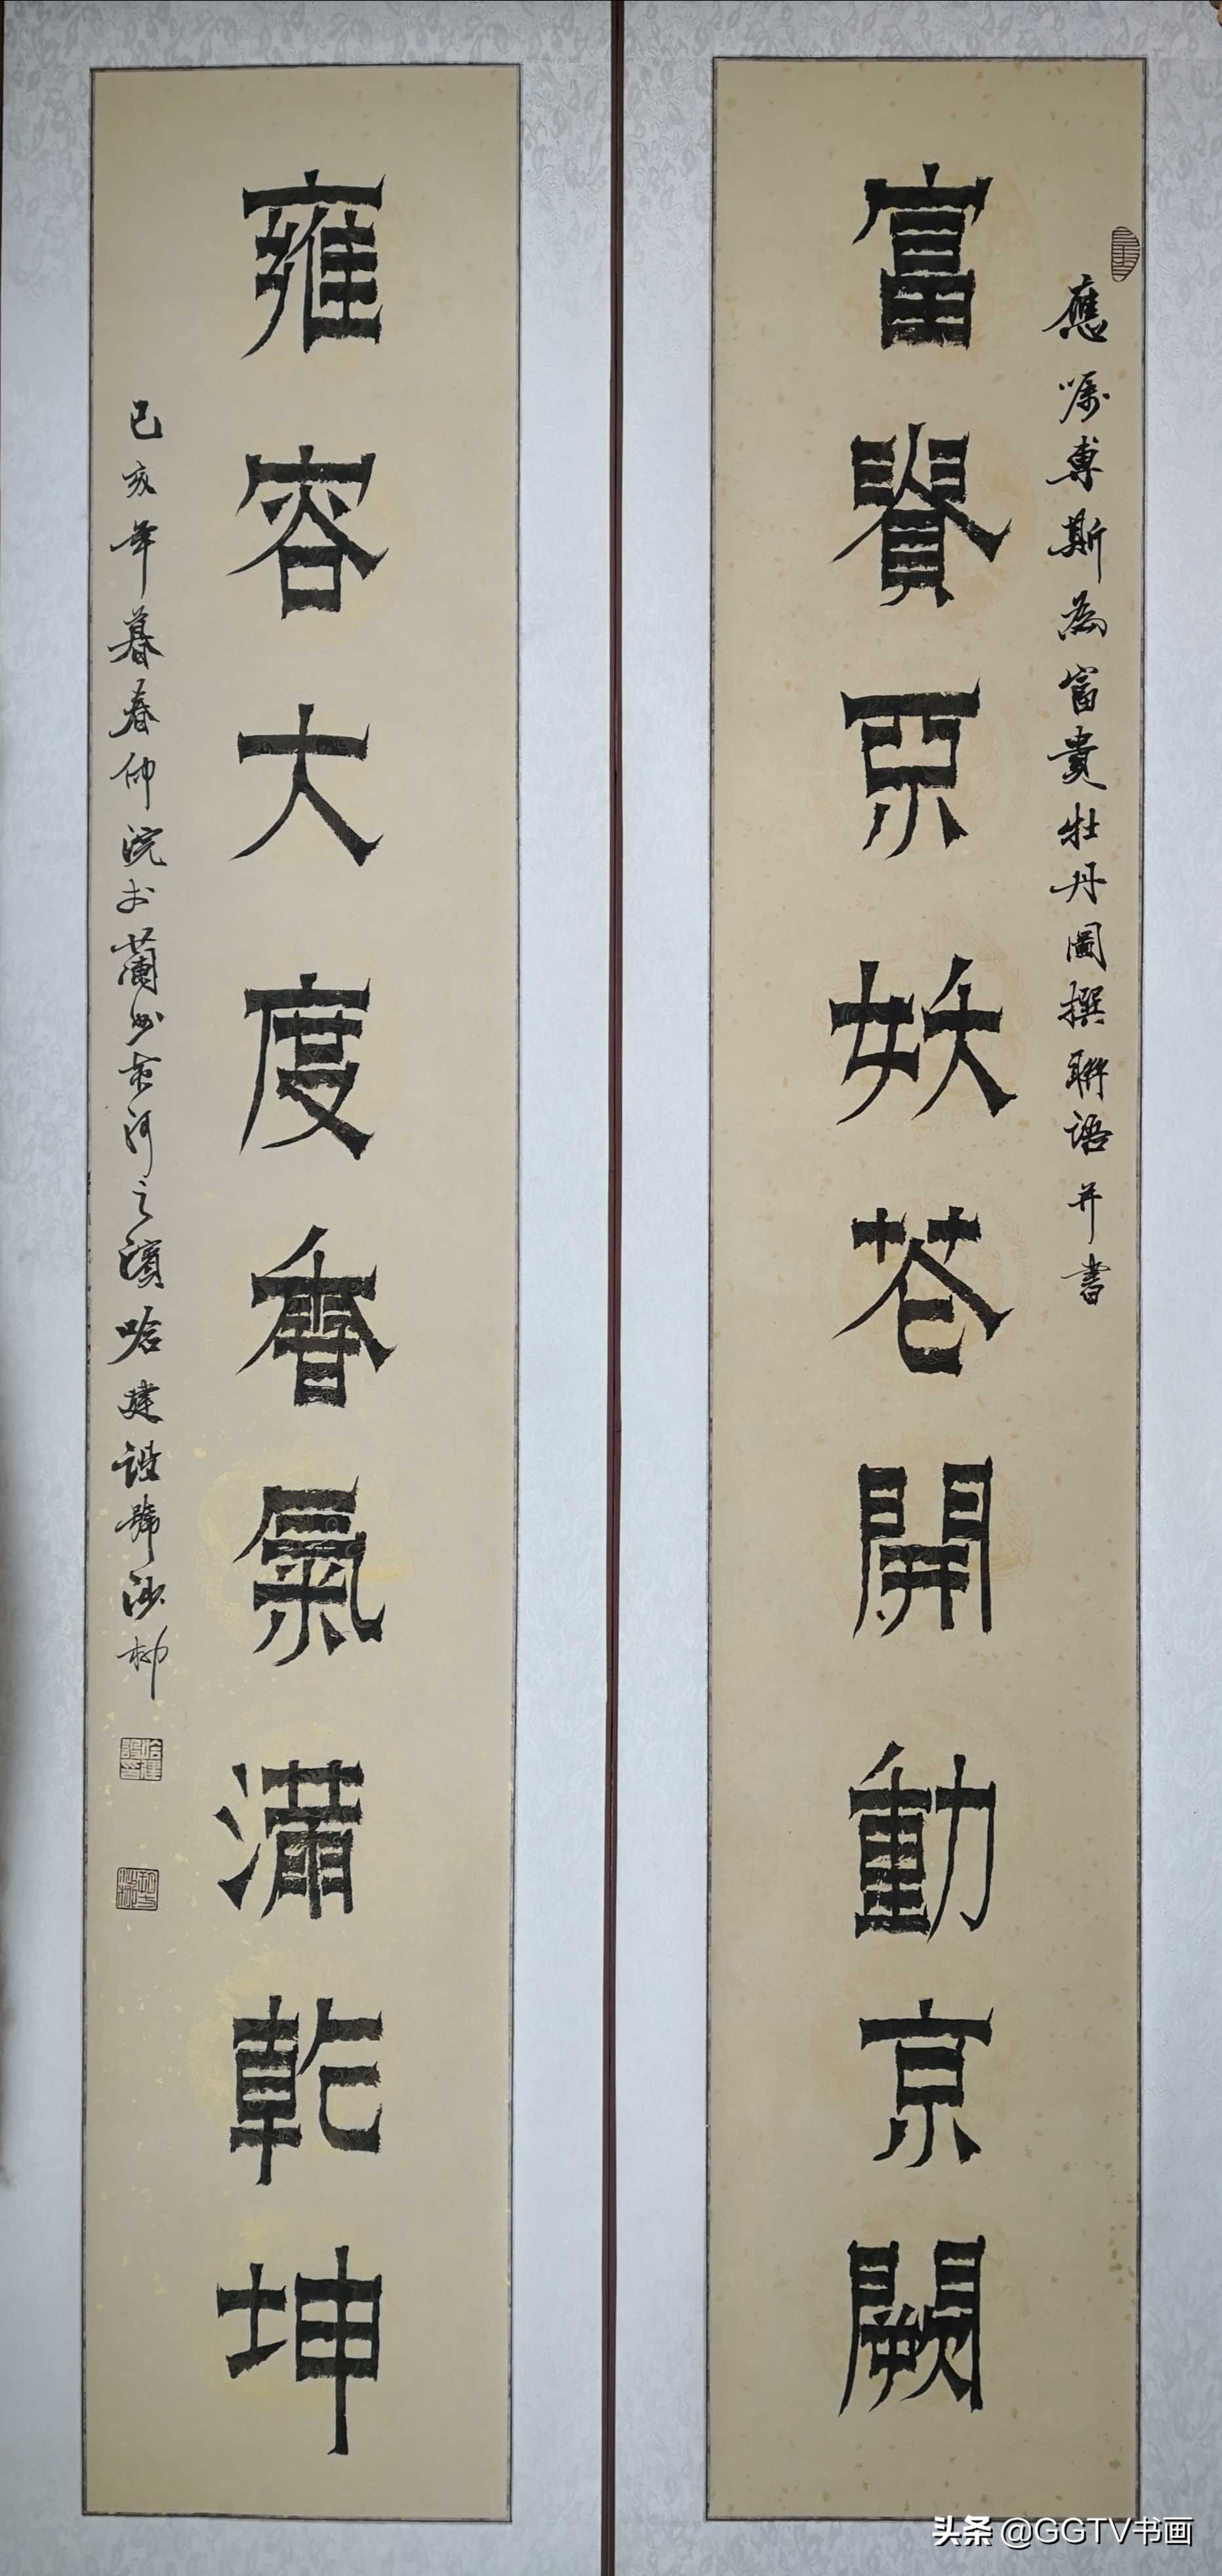 應嘱專斯為富貴牡丹圖撰聯語并書
富貴妖花開動京闕
雍容大度香氣滿乾坤
己亥年暮春仲浣於蘭州黃河之濱哈建設號沙柳
头条 @GGTV书画